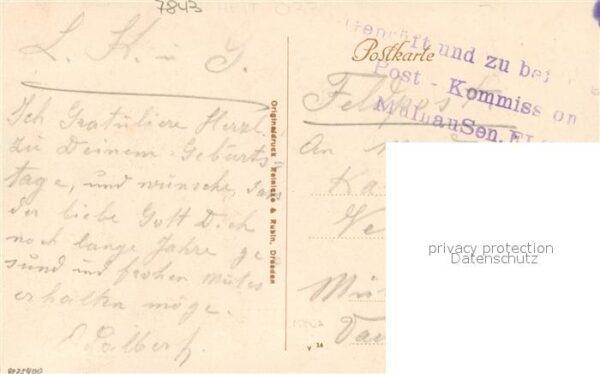 7843
L. K. u. G.
Ich Gratuliere Herzl.
Zu Deinem Geburts
tage, und wünsche, das
der liebe Gott Dich
noch lange Jahre ge
sund und frohen Mutes
erhalten möge.
Originaldruck Reinicke & Rubin, Dresden
Postkarte
und zu
Post - Kommission
Mülhausen. El
Feldpost
An
V 14
privacy protection
Datenschutz